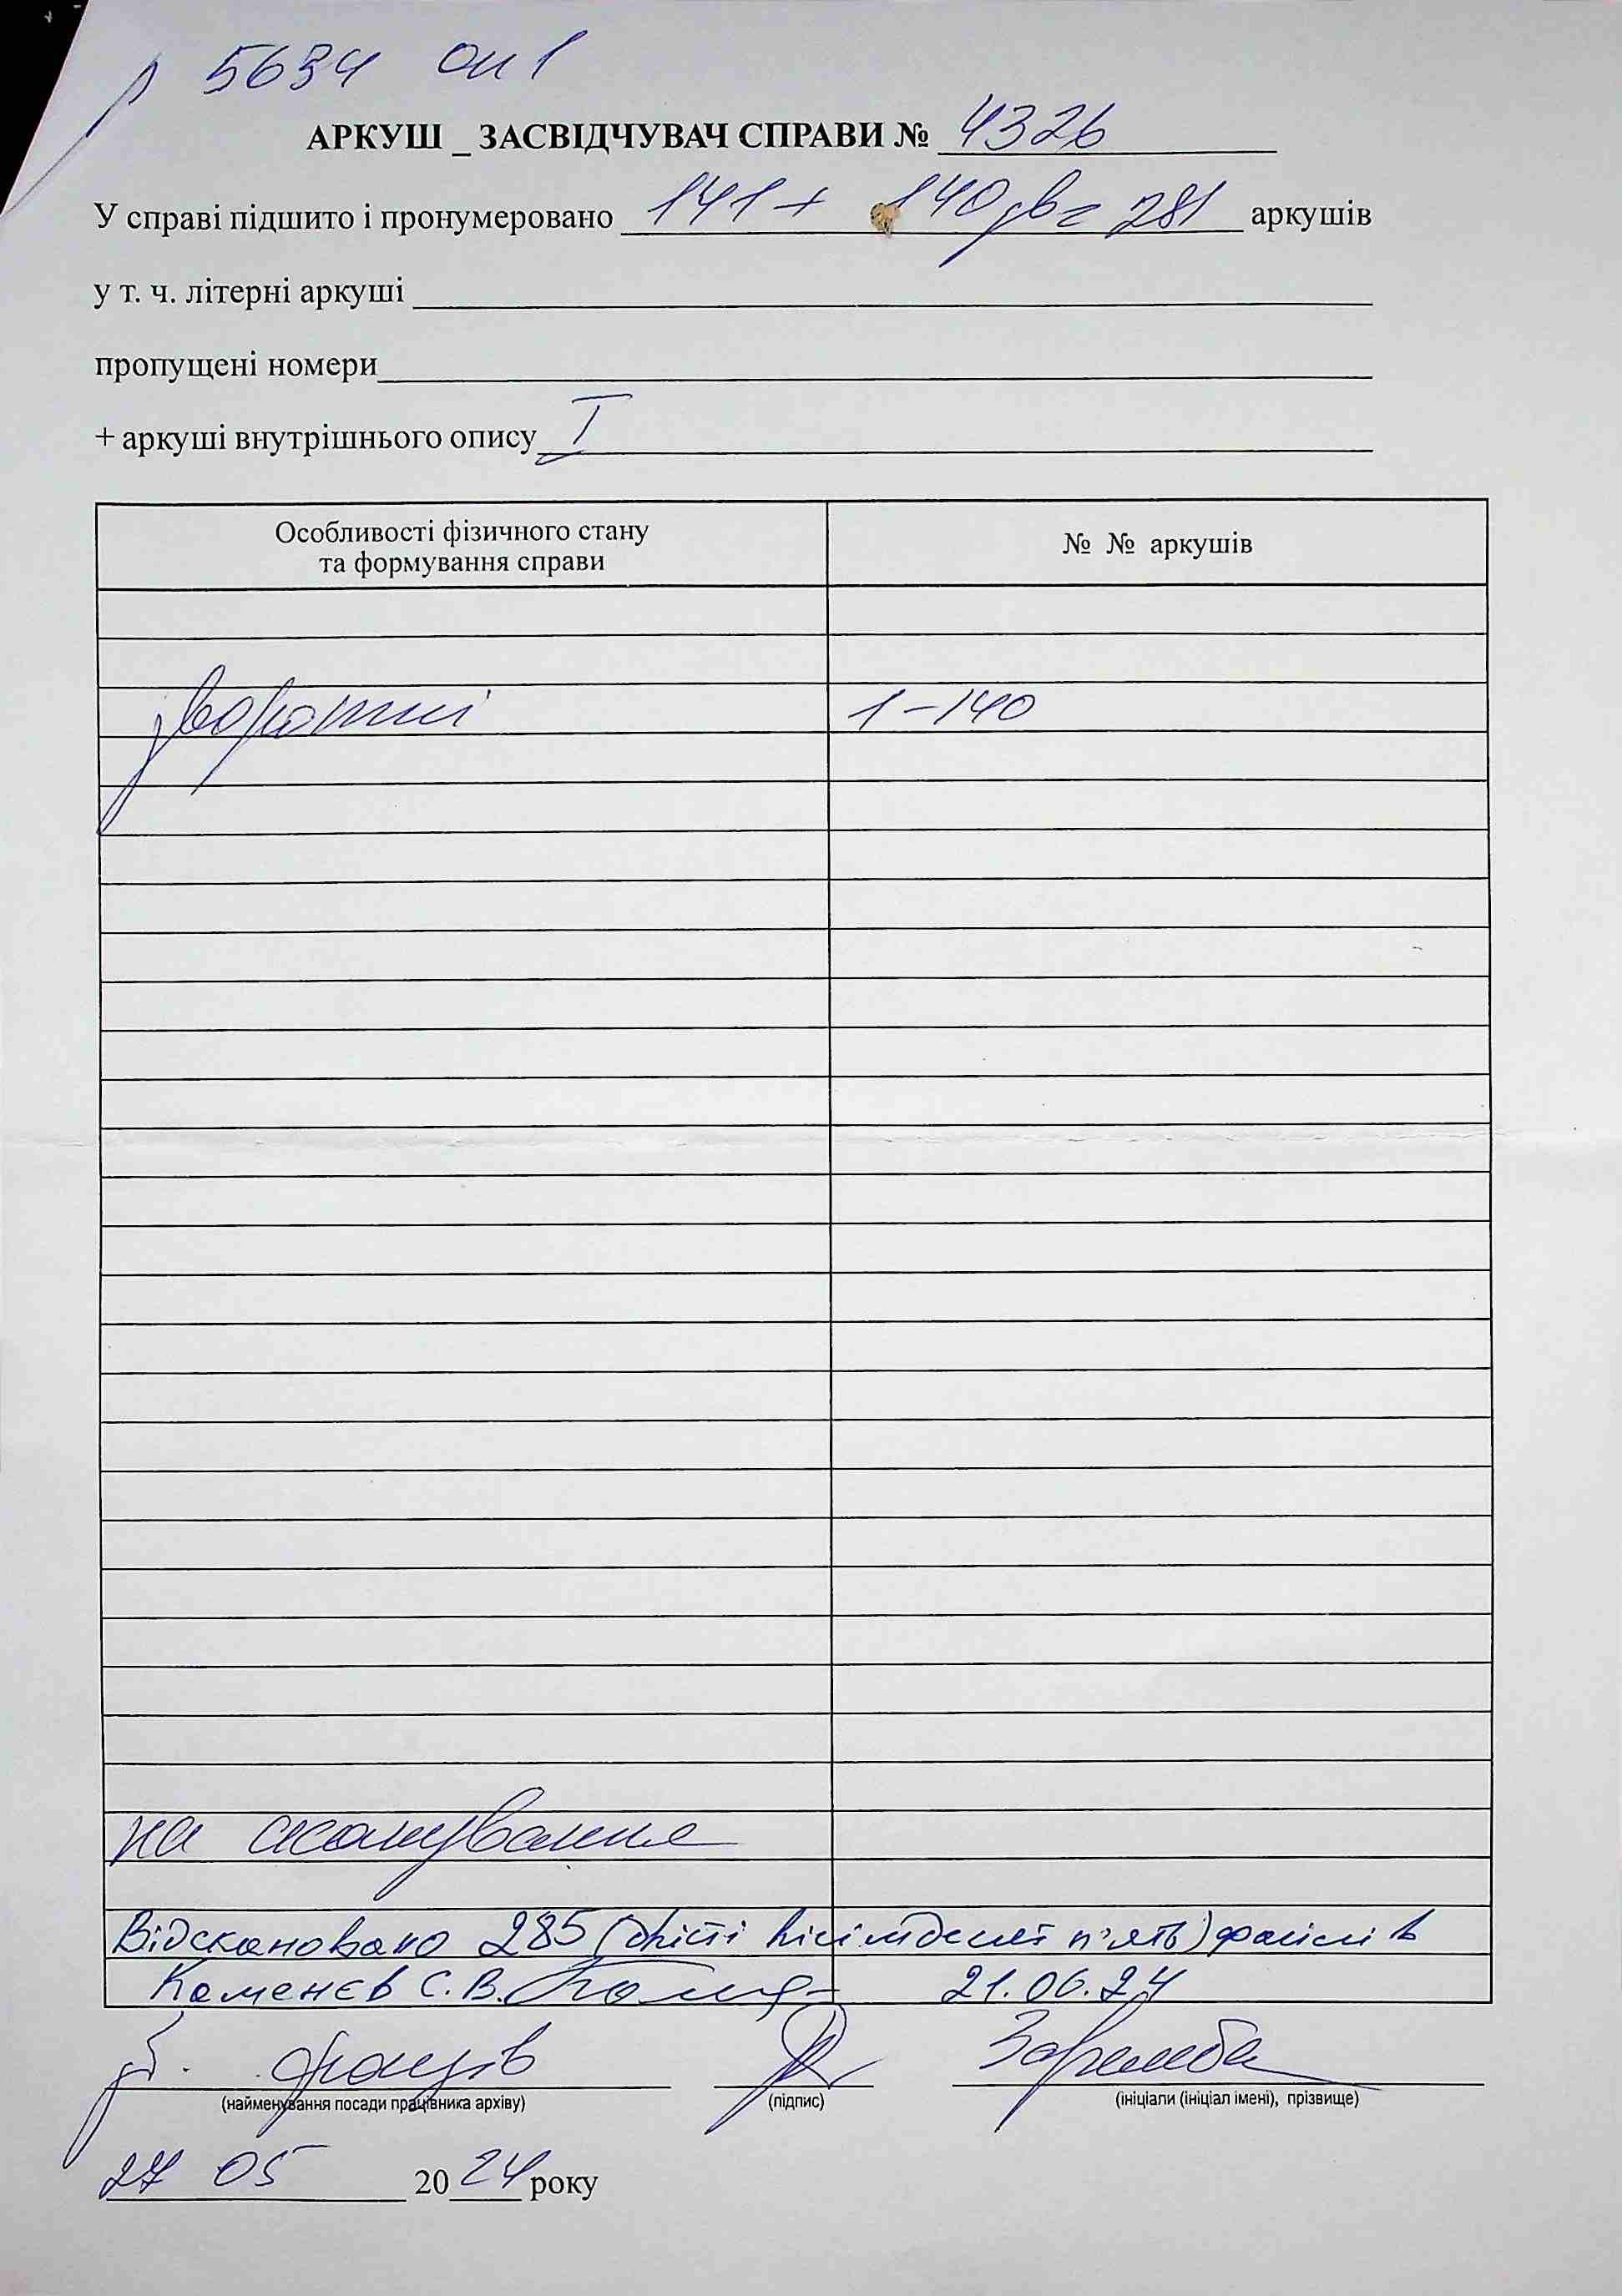 р 5634 оп 1
АРКУШ _ ЗАСВІДЧУВАЧ СПРАВИ № 4326
У справі підшито і пронумеровано 141 + 140 зв = 281 аркушів
у т. ч. літерні аркуші
пропущені номери
+ аркуші внутрішнього опису I
Особливості фізичного стану
та формування справи
№ № аркушів
зворотні 1-140
на сканування
Відскановано 285 (двісті вісімдесят п'ять) файлів
Каменєв С.В. 21.06.24
фахів Заремба
(найменування посади працівника архіву) (підпис) (ініціали (ініціал імені), прізвище)
27 05 2024 року